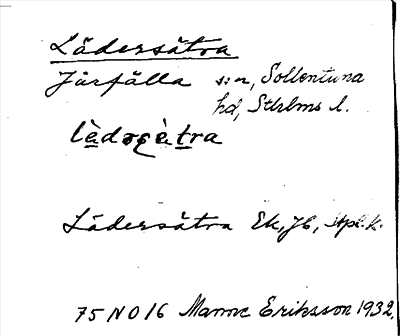 Lädersätra
Järfälla s:n, Sollentuna
hd, Sthlms l.
Lädersätra Ek, Jb,
75 NO 16 Manne Eriksson 1932.